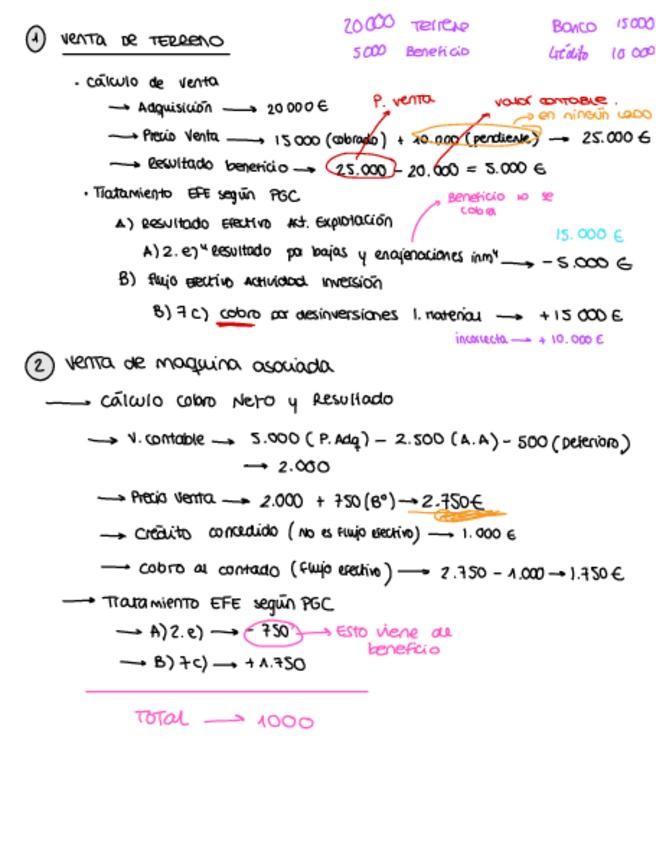 ① VENTA DE TERRENO
20000 Terreno
5000 Beneficio
Banco 15000
Crédito 10 000
· Cálculo de venta
→ Adquisición → 20 000 €
P. venta
valor contable.
→ en ningún lado
→ Precio Venta → 15 000 (cobrado) + 10.000 (pendiente) → 25.000 €
→ Resultado beneficio → 25.000 - 20.000 = 5.000 €
· Tratamiento EFE según PGC
Beneficio no se cobra
A) Resultado Efectivo Act. Explotación
15.000 €
A) 2. e) "Resultado por bajas y enajenaciones inm" → - 5.000 €
B) Flujo Efectivo Actividad Inversión
B) 7 c) cobro por desinversiones I. material → + 15 000 €
incorrecta → + 10.000 €
② Venta de maquina asociada
→ Cálculo cobro Neto y Resultado
→ V. contable → 5.000 (P. Adq) - 2.500 (A.A) - 500 (Deterioro)
→ 2.000
→ Precio Venta → 2.000 + 750 (Bº) → 2.750 €
→ Crédito concedido (No es flujo efectivo) → 1.000 €
→ Cobro al contado (flujo efectivo) → 2.750 - 1.000 → 1.750 €
→ Tratamiento EFE según PGC
→ A) 2. e) → - 750 → Esto viene de
beneficio
→ B) 7c) → + 1.750
Total → 1000